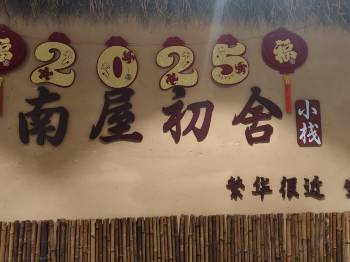 福 2025 福
南屋初舍 小栈
繁华很近